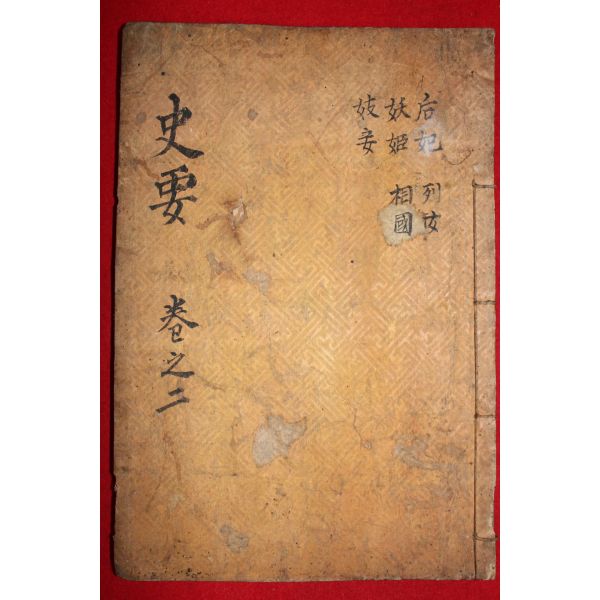 后妃 列女
妖姬 相國
妓妾
史要 卷之二